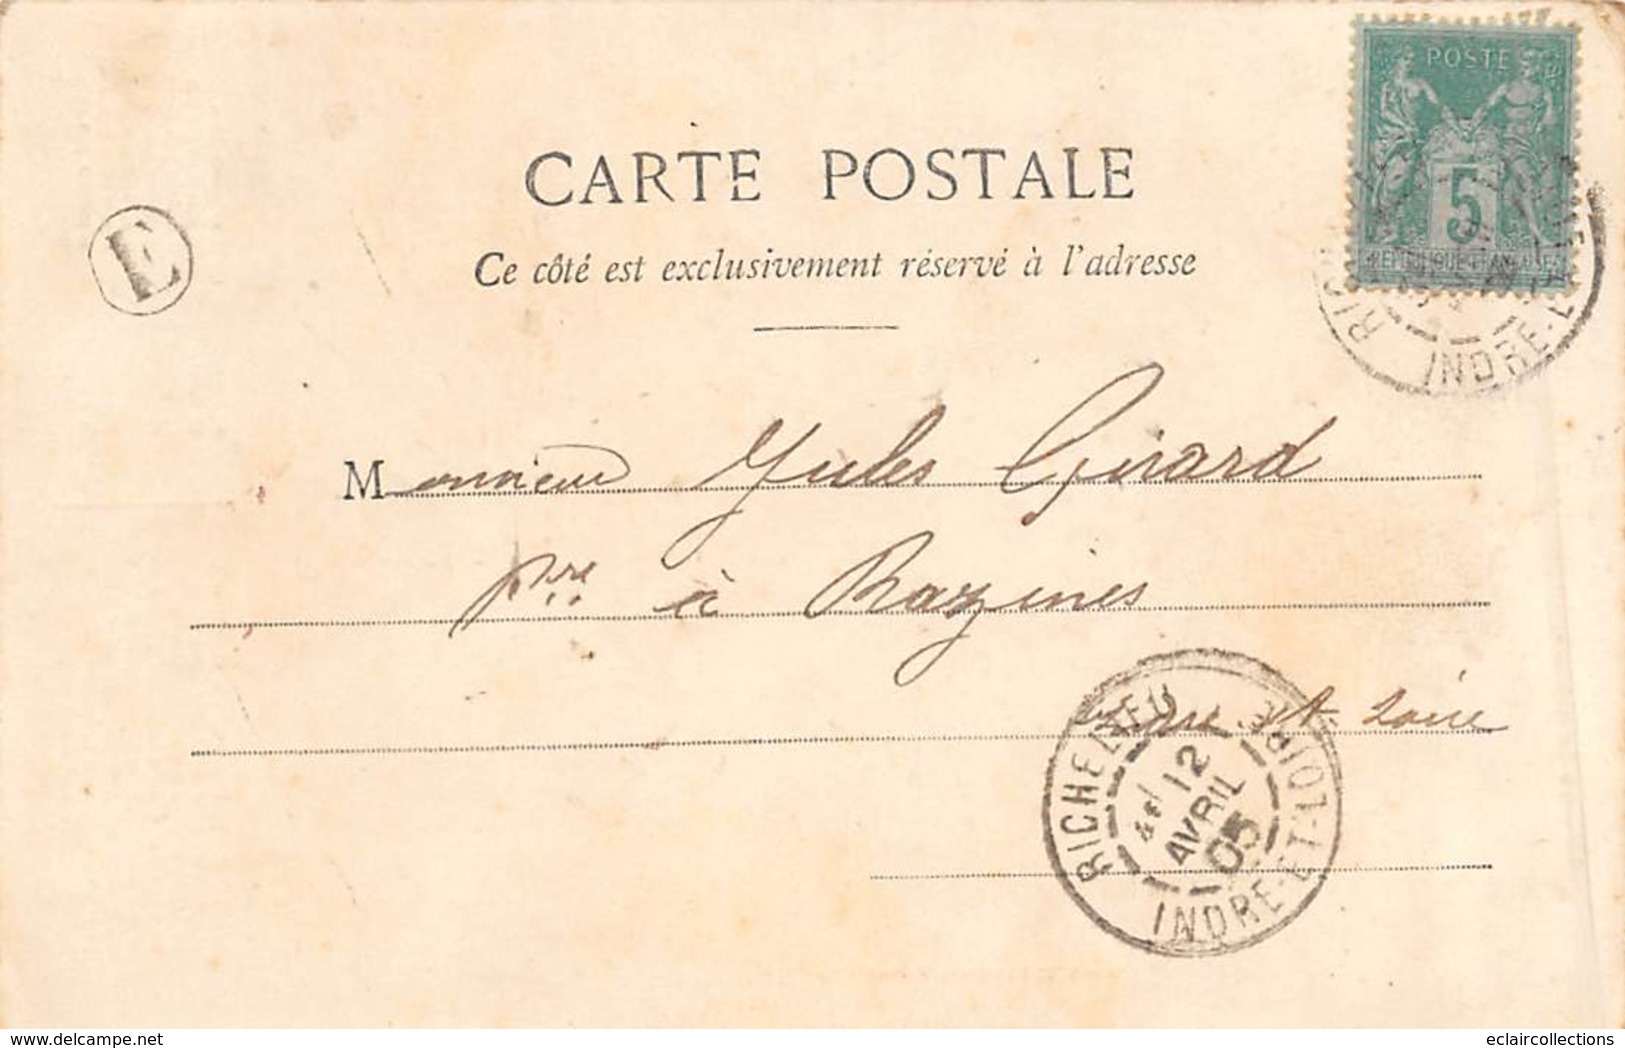 POSTE
5
REPUBLIQUE FRANCAISE
CARTE POSTALE
E
Ce côté est exclusivement réservé à l'adresse
INDRE-E
Monsieur Jules Girard
à Razines
Indre et Loire
RICHELIEU
12
AVRIL
05
INDRE-ET-LOIRE
www.delcampe.net
eclaircollections